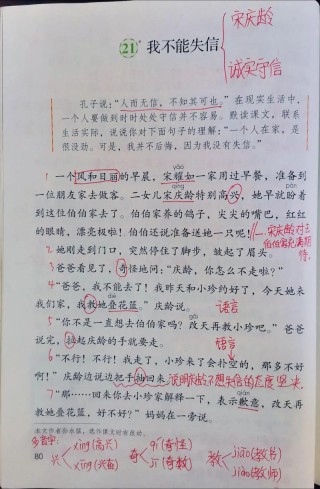 21 我不能失信
宋庆龄
诚实守信
孔子说:“人而无信,不知其可也。”在现实生活中,
一个人要做到时时处处守信并不容易。默读课文,联系
生活实际,说说你对下面句子的理解:“一个人在家,是
很没劲。可是,我并不后悔,因为我没有失信。”
1 一个风和日丽的早晨,宋耀如一家用过早餐,准备到
yào
一位朋友家去做客。二女儿宋庆龄特别高兴,她早就盼着
qìng
pàn
到这位伯伯家去了。伯伯家养的鸽子,尖尖的嘴巴,红红
的眼睛,漂亮极啦!伯伯还说准备送她一只呢!
宋庆龄对去
伯伯家充满期
待。
2 她刚走到门口,突然停住了脚步,皱起了眉头。
3 爸爸看见了,奇怪地问:“庆龄,你怎么不走啦?”
4 “爸爸,我不能去了!我昨天和小珍约好了,今天她来
我们家,我教她叠花篮。”庆龄说。
dié
语言
5 “你不是一直想去伯伯家吗?改天再教小珍吧。”爸爸
说完,拉起庆龄的手就要走。
语言
6 “不行!不行!我走了,小珍来了会扑空的,那多不好
啊!”庆龄边说边把手抽回来。
说明庆龄不想失信的态度坚决。
7 “那……回来你去小珍家解释一下,表示歉意,改天再
教她叠花篮,好不好?”妈妈在一旁说。
本文作者孙永猛,选作课文时有改动。
80
多音字:
兴 xìng(高兴)
xīng(兴奋)
奇 qí(奇怪)
jī(奇数)
教 jiāo(教书)
jiào(教师)